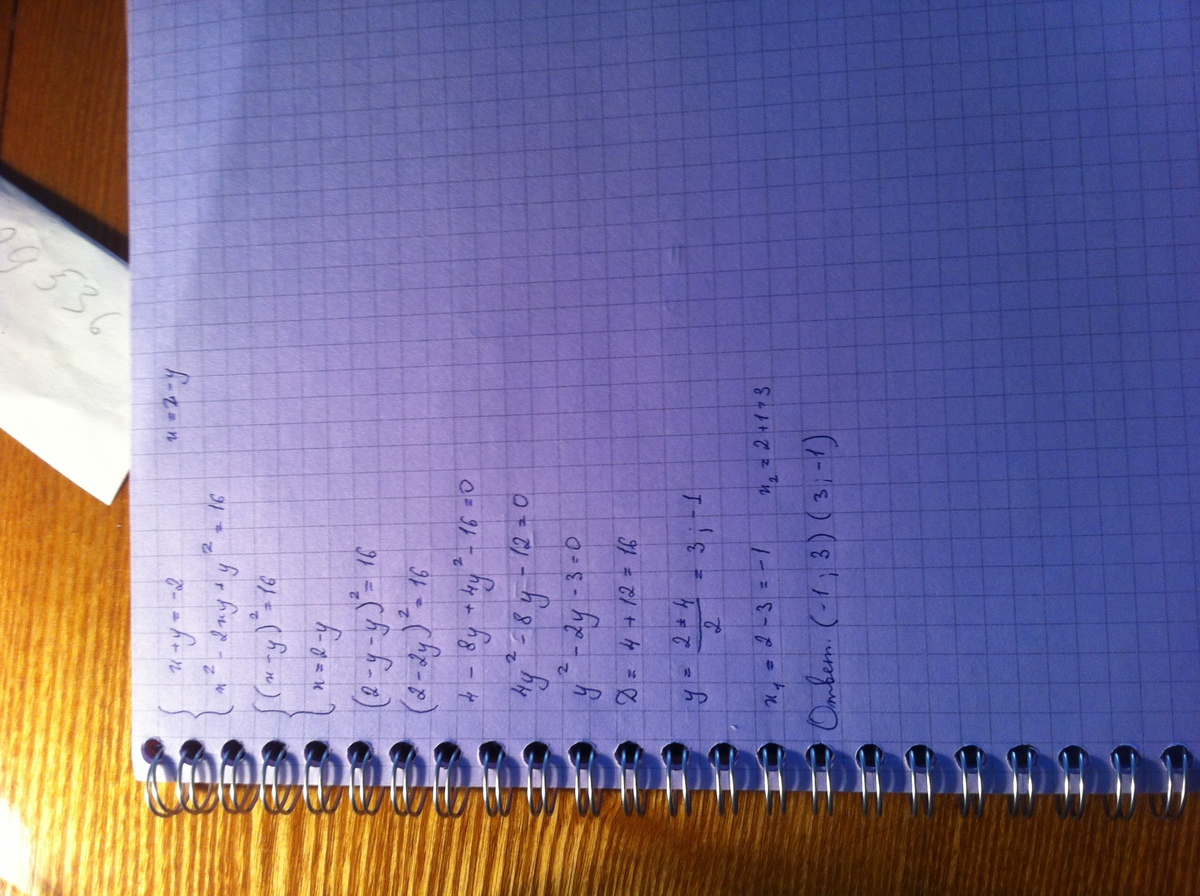 x + y = -2
x = 2 - y
x² - 2xy + y² = 16
(x - y)² = 16
x = 2 - y
(2 - y - y)² = 16
(2 - 2y)² = 16
4 - 8y + 4y² - 16 = 0
4y² - 8y - 12 = 0
y² - 2y - 3 = 0
D = 4 + 12 = 16
y = (2 ± 4)/2 = 3 ; -1
x₁ = 2 - 3 = -1 x₂ = 2 + 1 = 3
Ответ. (-1 ; 3) (3 ; -1)
99536